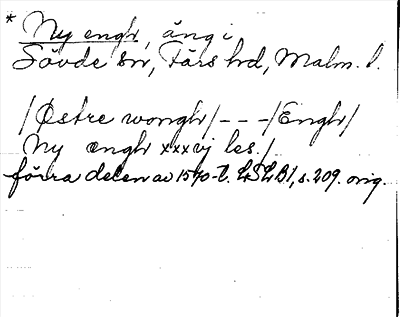 * Ny enghr, äng i
Sövde sn, Färs hd, Malm. l.
/Østre wonghr/ - - -/Enghr/
Ny enghr xxxvj les./
förra delen av 1570-t. LSLB1, s. 209. orig.